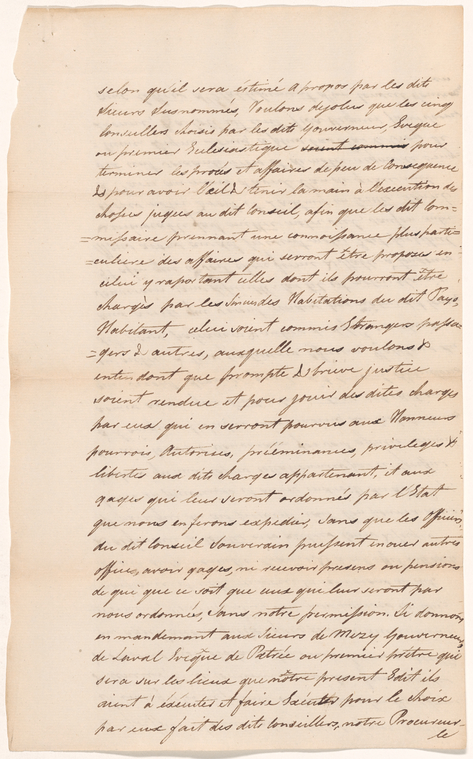 selon qu'il sera éstimé a propos par les dits
Sieurs Susnommés, Voulons de plus que les cinq
Conseillers choisis par les dits Gouverneur, Evêque
ou premier Eclesiastique soient commis pour
terminer les procés et affaires de peu de Consequence
& pour avoir l'œil & tenir la main à l'execution des
choses jugées au dit Conseil, afin que les dit Com=
=missaire prennant une connoissance plus parti=
=culière des affaires qui serront être proposés en
celui y raportant celles dont ils pourront être
chargés par les Sindes Habitations du dit Pays,
Habitant, celui soient commis Etrangers passa=
=gers & autres, auxquelle nous voulons &
entendont que prompte & brieve justice
soient rendue et pour jouir des dites charges
par ceux qui en serront pourvus aux Honneurs
pourrois, Autorités, prééminances, privileges &
libertés aux dits charges appartenant, et aux
gages qui leur seront ordonnés par l'Etat
que nous en ferons expedier, sans que les Officiers
du dit Conseil Souverain puissent exercer autres
offices, avoir gages, ni recevoir presens ou pensions
de qui que ce soit que ceux qui leur seront par
nous ordonnés, sans notre permission. Si donnons
en mandemant aux Sieurs de Mezy Gouverneur,
de Laval Evêque de Petrée ou premier prêtre qui
sera sur les lieux que nôtre present Edit ils
aient à éxécuter et faire Exécuter pour le choix
par eux fait des dits Conseillers, notre Procureur
le